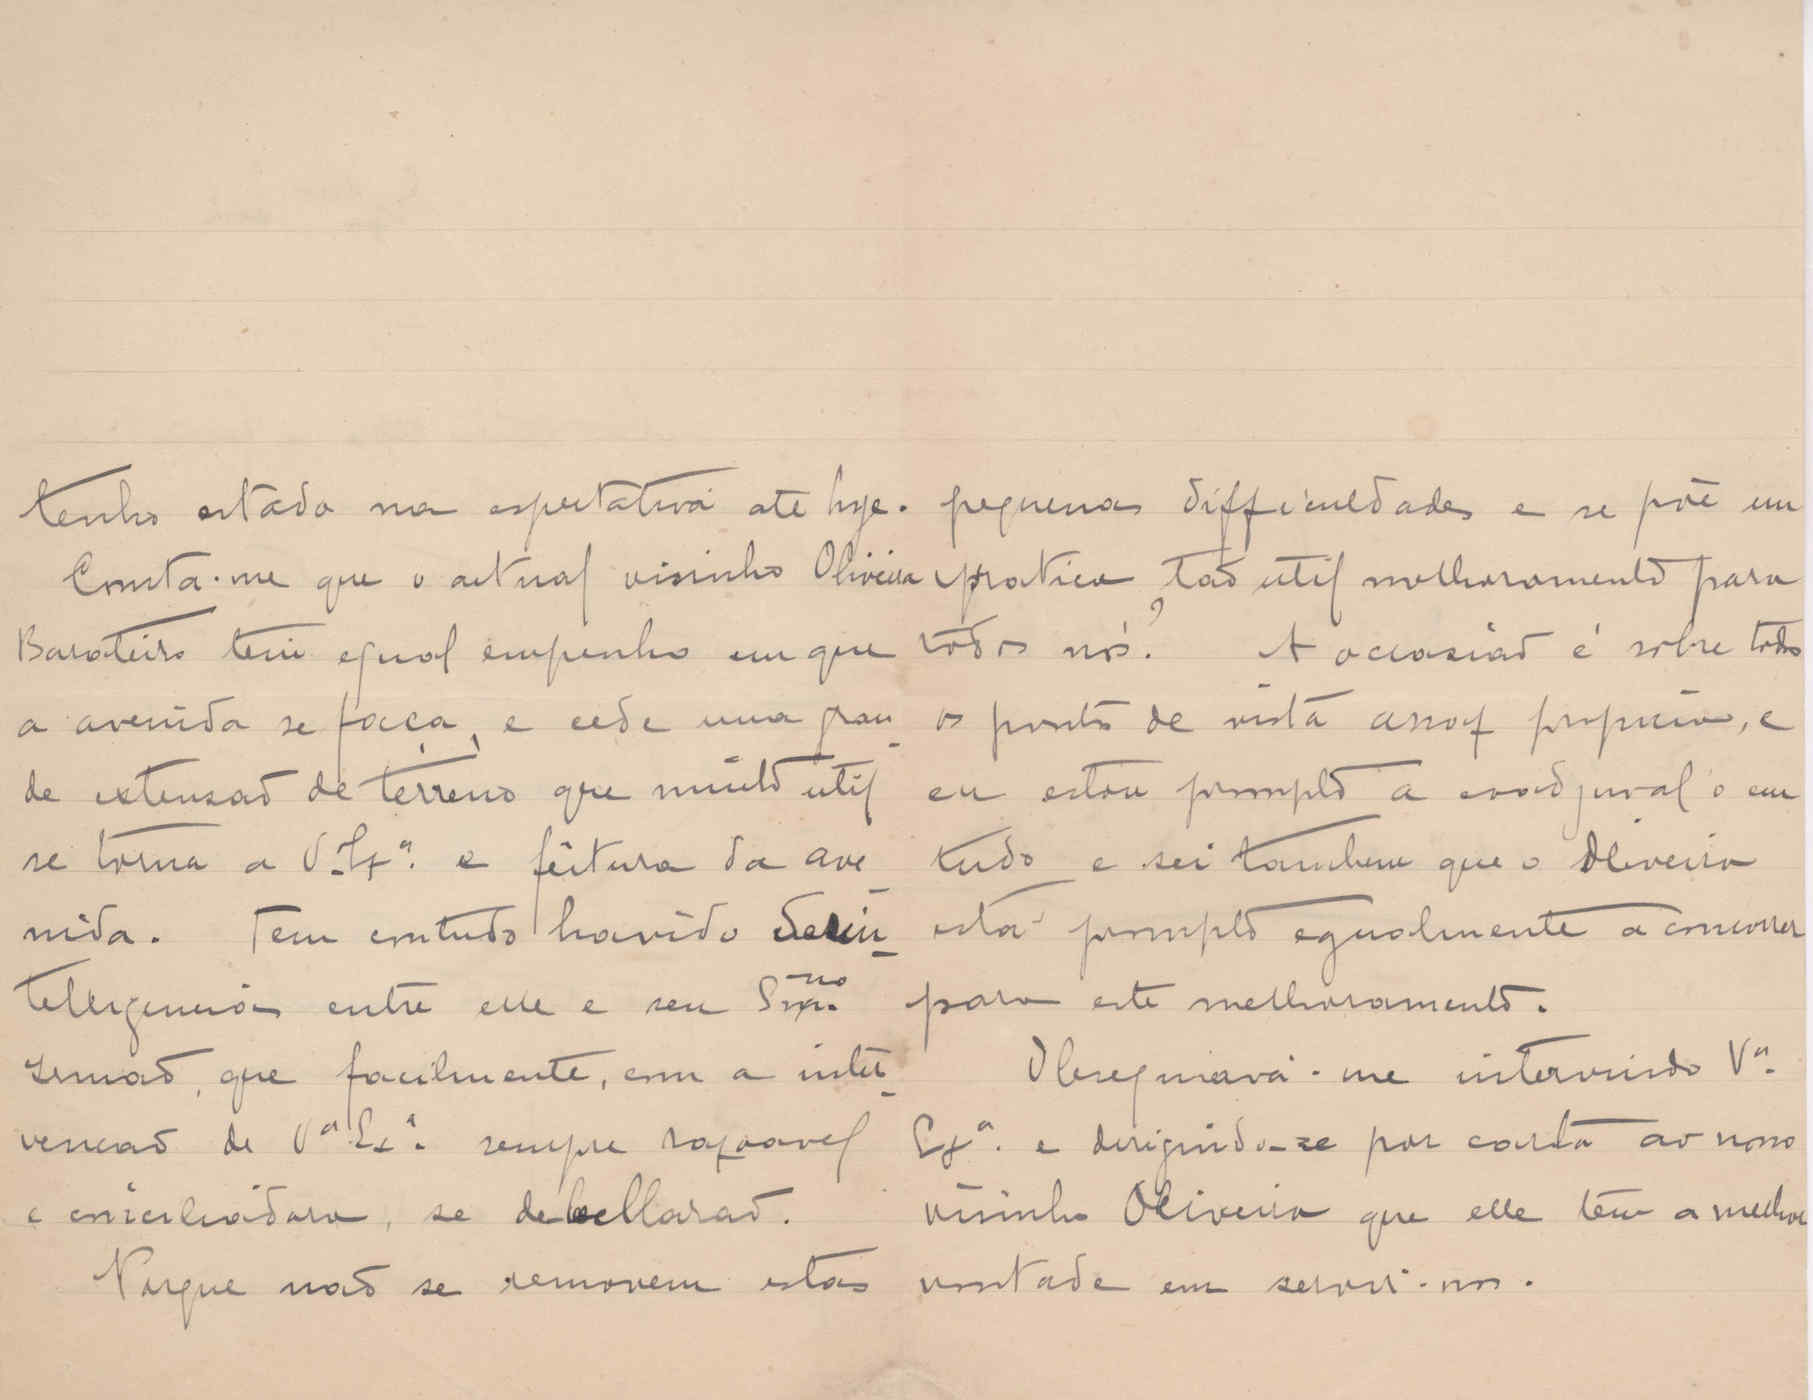 tenho estado na espectativa até hoje.
Consta-me que o actual visinho Oliveira
Barateiro tem egual empenho em que
a avenida se faça, e cede uma gran-
de extensaõ de terreno que muito util
se torna a V. Ex.ª e feitura da ave-
nida. Tem comtudo havido desin-
telligencias entre elle e seu
irmaõ, que facilmente, com a inter-
vencaõ de V.ª Ex.ª sempre razoavel
e conciliadora, se debellaraõ.
Porque naõ se removem estas
pequenas difficuldades e se põe em
pratica taõ util melhoramento para
todos nós? A occasiaõ é sobre todos
os pontos de vista assaz propicia, e
eu estou prompto a coadjuval-o em
tudo e sei tambem que o Oliveira
está prompto egualmente a concorrer
para este melhoramento.
Obsequiava-me intervindo V.ª
Ex.ª e dirigindo-se por carta ao nosso
visinho Oliveira que elle tem a melhor
vontade em servir-nos.